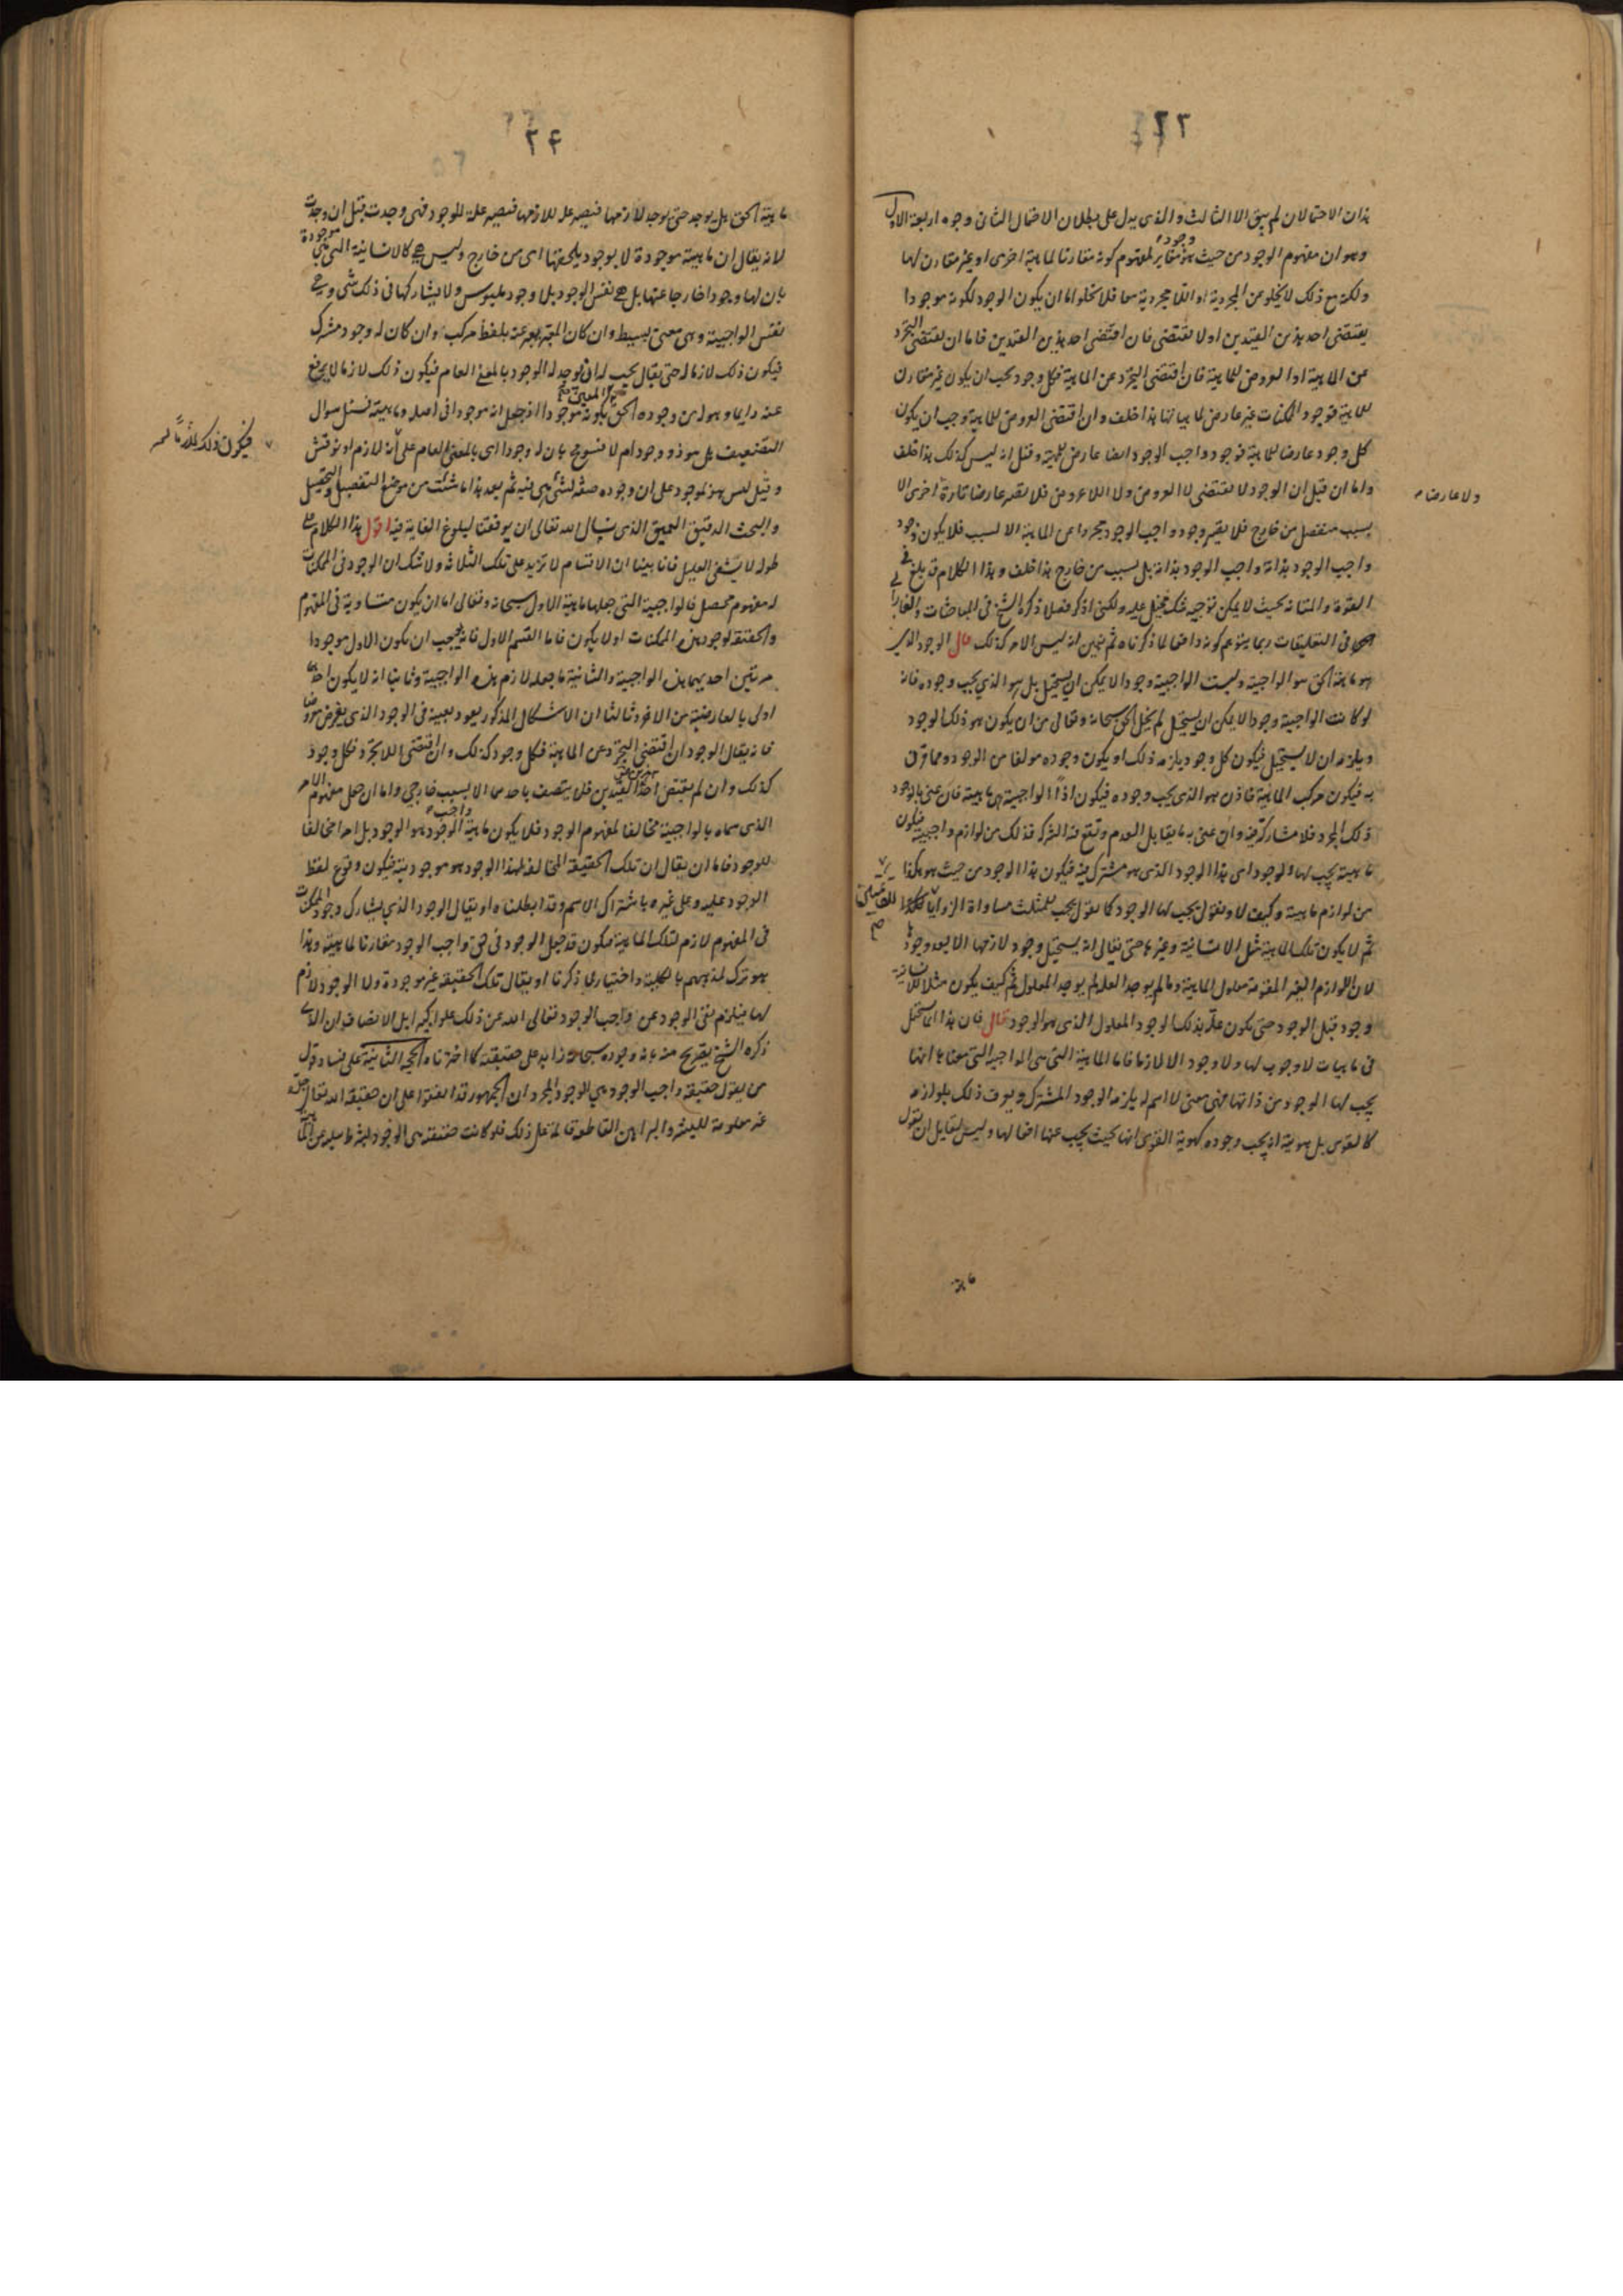 هذان الاحتمالان لم يبق الا الثالث والذى يدل على بطلان الاحتمال الثانى وجوه اربعة الاول
وهو ان مفهوم الوجود من حيث هو وجود مغاير لمفهوم كونه مقارنا لماهية اخرى او غير مقارن لها
ولكنه مع ذلك لا يخلو عن المجردية او اللامجردية فلا يخلو اما ان يكون الوجود لكونه موجودا
يقتضى احد هذين القيدين او لا يقتضى فان اقتضى احد هذين القيدين فاما ان يقتضى التجرد
عن الماهية او العروض للماهية فان اقتضى التجرد عن الماهية فكل وجود يجب ان يكون غير مقارن
للماهية فوجود الممكنات غير عارض لماهياتها هذا خلف وان اقتضى العروض للماهية وجب ان يكون
كل وجود عارضا للماهية فوجود واجب الوجود ايضا عارض لماهية وقيل انه ليس كذلك هذا خلف
واما ان قيل ان الوجود لا يقتضى لا العروض ولا اللاعروض فلا يصير عارضا تارة ولا عارضا اخرى الا
بسبب منفصل من خارج فلا يصير وجود واجب الوجود مجردا عن الماهية الا لسبب فلا يكون وجود
واجب الوجود بذاته واجب الوجود بذاته بل بسبب من خارج هذا خلف وهذا الكلام قد بلغ فى
القوة والمتانة بحيث لا يمكن توجيه شك مخيل عليه ولكنى اذكر فصلا ذكره الشيخ فى المباحثات والفارابى
فى التعليقات ربما يتوهم كونه دافعا لما ذكرناه ثم نبين انه ليس الامر كذلك قال الوجود الذى
هو ماهية الحق هو الواجبية وليست الواجبية وجودا لا يمكن ان يستحيل بل هو الذي يجب وجوده فانه
لو كانت الواجبية وجودا لا يمكن ان يستحيل لم يخل الحق سبحانه وتعالى من ان يكون هو ذلك الوجود
ويلزمه ان لا يستحيل فيكون كل وجود يلزمه ذلك او يكون وجوده مولفا من الوجود ومما فرق
به فيكون مركب الماهية فاذن هو الذى يجب وجوده فيكون اذاً الواجبية هى ماهيته فان عنى بالوجود
ذلك المجرد فلا مشاركة فيه وان عنى به ما يقابل العدم وتقع فيه الشركة فذلك من لوازم واجبيته فيكون
ماهيته يجب لها الوجود اى هذا الوجود الذى هو مشترك فيه فيكون هذا الوجود من حيث هو هكذا
من لوازم ماهيته وكيف لا ونقول يجب لها الوجود كما نقول يجب للمثلث مساواة الزوايا للقائمتين
ثم لا يكون تلك الماهية مثل الانسانية وغيرها حتى يقال انه يستحيل وجود لازمها الا بعد وجودها
لان اللوازم الغير المقومة معلول الماهية وما لم يوجد العلة لم يوجد المعلول ثم كيف يكون مثلا للانسانية
وجود قبل الوجود حتى تكون علة بذلك الوجود المعلول الذى هو الوجود قال فان هذا انما يستحيل
فى ماهيات لا وجوب لها ولا وجود الا لازما فاما الماهية التى هى الواجبية التى معناها انها
يجب لها الوجود من ذاتها فهى معنى لا اسم له يلزمه الوجود المشترك ويعرف ذلك بلوازمه
كالقوى بل هويته انه يجب وجوده كهوية القوى انها بحيث يجب عنها افعالها وليس لقايل ان يقول
ولا عارضا
ماهية
٢٤
ماهية الحق بل يوجد حتى يوجد لازمها فتصير علة للازمها فتصير علة للوجود فهى وجدت قبل ان وجدت
لانه يقال ان ماهيته موجودة لا بوجود يلحقها اى من خارج وليس هى كالانسانية التى هى موجودة
بان لها وجودا خارجا عنها بل هى نفس الوجود بلا وجود ملبوس ولا يشاركها فى ذلك شى وهى
نفس الواجبية وهى معنى بسيط وان كان المعبر يعبر عنه بلفظ مركب وان كان له وجود مشترك
فيكون ذلك لازما له حتى يقال يجب له الوجود بالمعنى العام فيكون ذلك لازما لا يرفع
عنه دايما وهو له من وجوده الحق بكونه موجودا اذ جعل انه موجود فى اصله وماهيته فسئل سوال
التضعيف بل هو ذو وجود ام لا فسومح بان له وجودا اى بالمعنى العام على انه لازم او نوقش
وقيل ليس هو بموجود على ان وجوده صفة لشئ هى فيه ثم بعد هذا ما شئت من موضع التفصيل والتحصيل
والبحث الدقيق العميق الذى نسال الله تعالى ان يوفقنا لبلوغ الغاية فيه اقول هذا الكلام على
طوله لا يشفى العليل فانا بينا ان الاقسام لا تزيد على تلك الثلاثة ولا شك ان الوجود فى الممكنات
له مفهوم محصل فالواجبية التى جعلها ماهية الاول سبحانه وتعالى اما ان يكون متساوية فى المفهوم
والحقيقة لوجود هذه الممكنات او لا يكون فاما القسم الاول فانه يجب ان يكون الاول موجودا
مرتين احديهما هذه الواجبية والثانية ما جعله لازم هذه الواجبية وثانيا انه لا يكون احدهما
اولى بالعارضية من الاخر وثالثا ان الاشكال المذكور يعود بعينه فى الوجود الذى يفرض معروضا
فانه يقال الوجود ان اقتضى التجرد عن الماهية فكل وجود كذلك وان اقتضى اللاتجرد فكل وجود
كذلك وان لم يقتض احد القيدين فلا يتصف باحدهما الا بسبب خارجى واما ان جعل مفهوم الامر
الذى سماه بالواجبية مخالفا لمفهوم الوجود فلا يكون ماهية واجب الوجود هو الوجود بل امرا مخالفا
للوجود فاما ان يقال ان تلك الحقيقة المخالفة لهذا الوجود هو موجوديته فيكون وقوع لفظ
الوجود عليه وعلى غيره باشتراك الاسم وقد ابطلناه او يقال الوجود الذي يشارك وجود الممكنات
فى المفهوم لازم لتلك الماهية فيكون قد جعل الوجود فى حق واجب الوجود مقارنا لماهيته وهذا
هو ترك لمذهبهم بالكلية واختيار لما ذكرنا او يقال تلك الحقيقة غير موجودة ولا الوجود لازم
لها فيلزم نفى الوجود عن واجب الوجود فتعالى الله عن ذلك علوا كبيرا بل الانصاف ان الذى
ذكره الشيخ تصريح منه بانه وجوده سبحانه زايد على حقيقته كما اخترناه الحجة الثانية على فساد قول
من يقول حقيقة واجب الوجود هي الوجود المجرد ان الجمهور قد اتفقوا على ان حقيقة الله تعالى
غير معلومة للبشر والبراهين القاطعة قائمة على ذلك فلو كانت حقيقته هى الوجود بشرط سلبه عن
فيكون ذلك